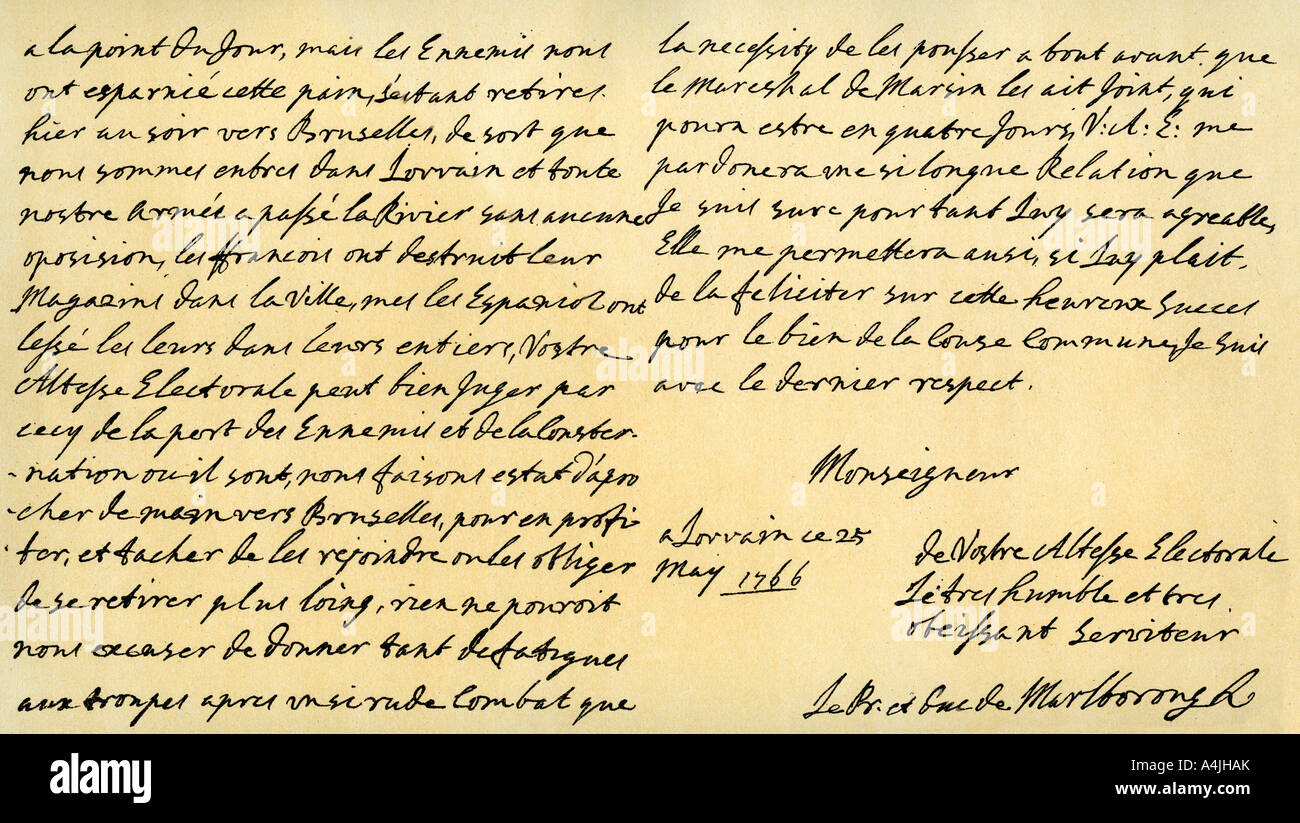 a la point du Jour, mais les Ennemis nous
ont esparnié cette pain, s'estant retires
hier au soir vers Bruselles, de sort que
nous sommes entres dans Lovvain et toute
nostre Armés a passé la Rivier sans aucune
oposision, les ffrancois ont destruit leur
Magazins dans la Ville, mes les Espaniols ont
lessé les leurs dans levrs entiers, Vostre
Altesse Electorale peut bien Juger par
cecy de la pert des Ennemis et de la Conster-
-nation ou il sont, nous faisons estat d'apro
-cher demain vers Bruselles, pour en profi-
-ter, et tacher de les rejoindre ou les obliger
de se retirer plus loing, rien ne pouroit
nous excuser de donner tant de fatigues
aux troupes apres un si rude Combat que
la necessity de les pousser a bout avant que
le Mareshal de Marsin les ait Joint, qui
poura estre en quatre Jours, V: A: E: me
pardonera une si longue Relation que
Je suis sure pourtant Luy sera agreable,
Elle me permettera aussi, si Luy plait,
de la feliciter sur cette heureux Succes
pour le bien de la Couse Commune, Je suis
avec le dernier respect.
Monseigneur
a Lovvain ce 25
May 1766
de Vostre Altesse Electorale
Le tres humble et tres
obeissant Serviteur
Le Pr. et Duc de Marlborough
alamy
Image ID: A4JHAK
www.alamy.com